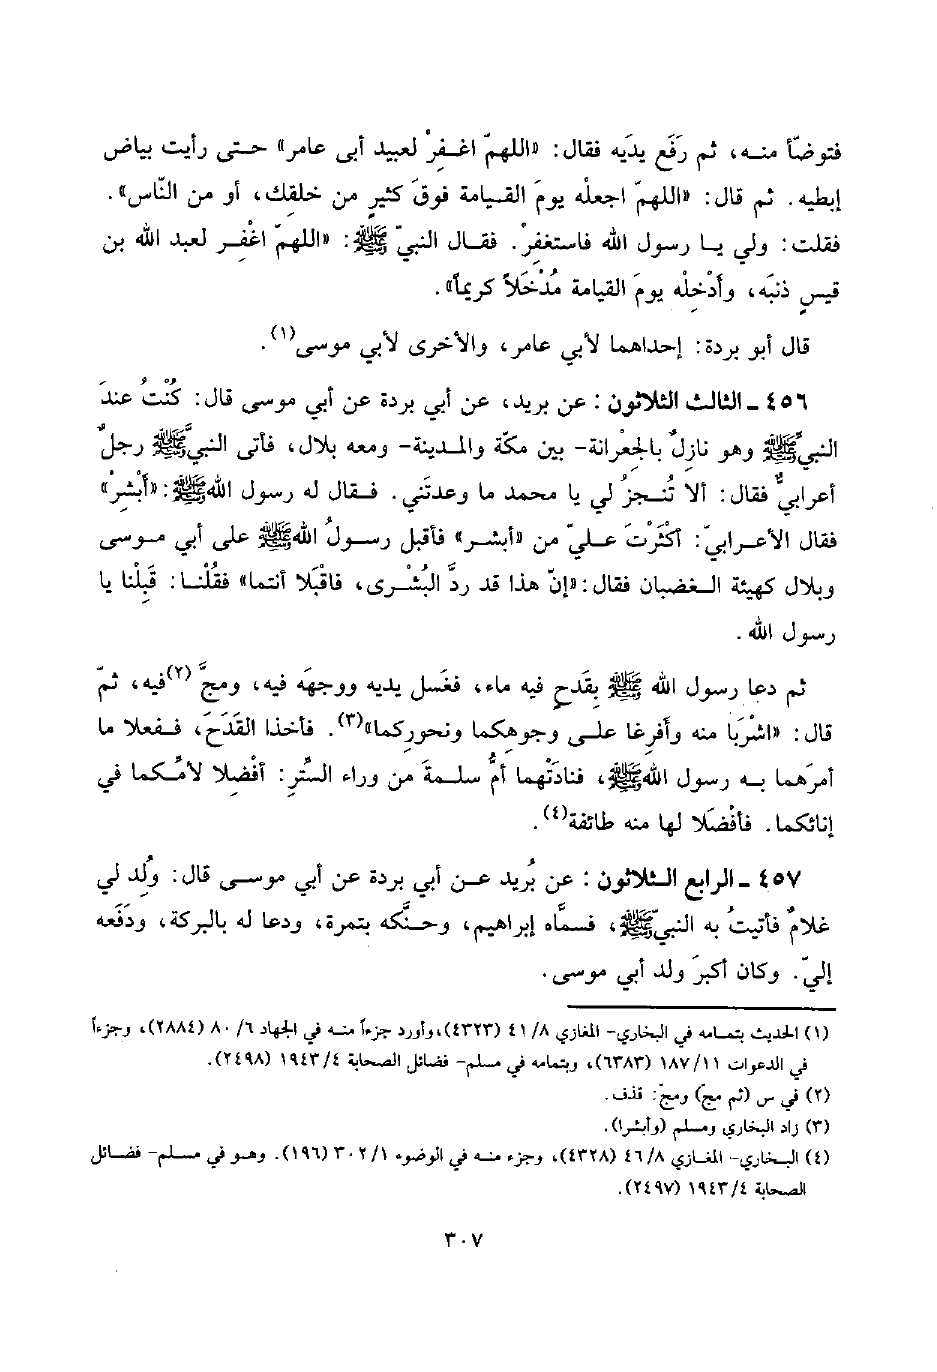 فتوضّأ منه، ثم رَفَع يدَيه فقال: «اللهمّ اغفِرْ لعبيد أبى عامر» حتى رأيت بياض
إبطيه. ثم قال: «اللهمّ اجعلْه يومَ القيامة فوقَ كثيرٍ من خلقِك، أو من النّاس».
فقلت: ولي يا رسول الله فاستغفِرْ. فقال النبيّ ﷺ: «اللهمّ اغْفِر لعبد الله بن
قيسٍ ذنبَه، وأَدْخِلْه يومَ القيامة مُدْخَلاً كريماً».
قال أبو بردة: إحداهما لأبي عامر، والأخرى لأبي موسى(١).
٤٥٦ - الثالث الثلاثون: عن بريد، عن أبي بردة عن أبي موسى قال: كُنْتُ عندَ
النبيّ ﷺ وهو نازلٌ بالجِعْرانة- بين مكّة والمدينة- ومعه بلال، فأتى النبيَّ ﷺ رجلٌ
أعرابيٌّ فقال: ألا تُنجزُ لي يا محمد ما وعدتَني. فقال له رسول الله ﷺ: «أَبْشِرْ»
فقال الأعرابيّ: أكْثَرْتَ عليّ من «أبشر» فأقبل رسولُ الله ﷺ على أبي موسى
وبلال كهيئة الغضبان فقال: «إنّ هذا قد ردَّ البُشْرى، فاقْبَلا أنتما» فقُلْنا: قَبِلْنا يا
رسول الله.
ثم دعا رسول الله ﷺ بقَدحٍ فيه ماء، فغَسل يديه ووجهَه فيه، ومجَّ (٢)فيه، ثمّ
قال: «اشْرَبا منه وأَفرِغا على وجوهكما ونحوركما»(٣). فأخذا القَدَحَ، ففعلا ما
أمرَهما به رسول الله ﷺ، فنادَتْهما أمُّ سلمةَ من وراء السِّتر: أفْضِلا لأمِّكما في
إنائكما. فأفْضَلا لها منه طائفة(٤).
٤٥٧ - الرابع الثلاثون: عن بُريد عن أبي بردة عن أبي موسى قال: وُلد لي
غلامٌ فأتيتُ به النبيّ ﷺ، فسمَّاه إبراهيم، وحنَّكه بتمرة، ودعا له بالبركة، ودَفَعه
إليّ. وكان أكبرَ ولد أبي موسى.
(١) الحديث بتمامه في البخاري- المغازي ٨/ ٤١ (٤٣٢٣)، وأورد جزءاً منه في الجهاد ٦/ ٨٠ (٢٨٨٤)، وجزءاً
في الدعوات ١١/ ١٨٧ (٦٣٨٣)، وبتمامه في مسلم- فضائل الصحابة ٤/ ١٩٤٣ (٢٤٩٨).
(٢) في س (ثم مج) ومجّ: قذف.
(٣) زاد البخاري ومسلم (وأبشرا).
(٤) البخاري- المغازي ٨/ ٤٦ (٤٣٢٨)، وجزء منه في الوضوء ١/ ٣٠٢ (١٩٦). وهو في مسلم- فضائل
الصحابة ٤/ ١٩٤٣ (٢٤٩٧).
٣٠٧